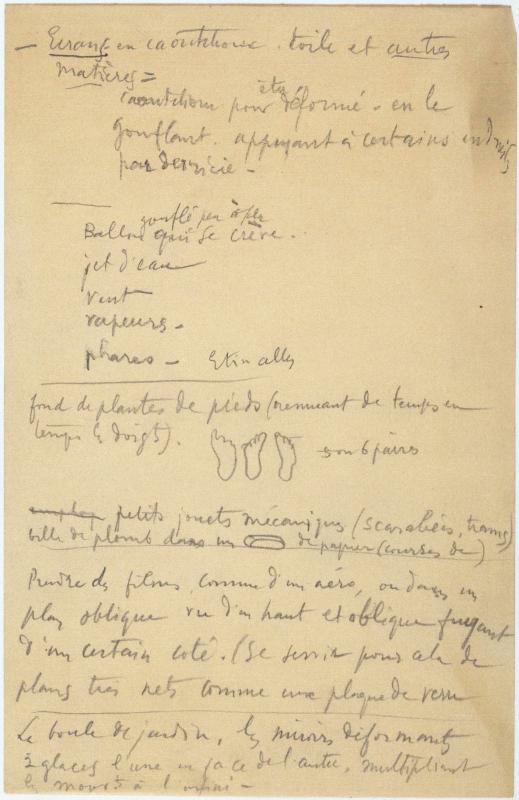 — Ecrans en caoutchouc. toile et autres
matières =
caoutchouc pour être déformé - en le
gonflant. appuyant à certains endroits
par derrière -
gonflé peu à peu
Ballon qui se crève.
jet d'eau
vent
vapeurs -
phares - Etincelles
fond de plantes de pieds (remuant de temps en
temps les doigts).
5 ou 6 paires
petits jouets mécaniques (scarabées, trams)
bille de plomb dans un de papier (courses de)
Prendre des films, comme d'un aéro, ou dans un
plan oblique vu d'en haut et oblique fuyant
d'un certain coté. (Se servir pour cela de
plans très nets comme une plaque de verre
La boule de jardin, les miroirs déformants
2 glaces l'une en face de l'autre, multipliant
les à l'infini -